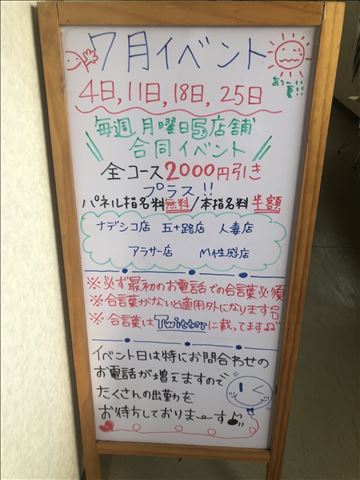 7月イベント
あつーい
夏!!
4日, 11日, 18日, 25日
毎週月曜日5店舗
合同イベント
全コース2000円引き
プラス!!
パネル指名料無料/本指名料半額
ナデシコ店 五十路店 人妻店
アラサー店 M性感店
※必ず最初のお電話での合言葉必須
※合言葉がないと適用外になります
※合言葉はTwitterに載ってます♫
イベント日は特にお問合わせの
お電話が増えますので
たくさんの出勤を
お待ちしておりまーす♪